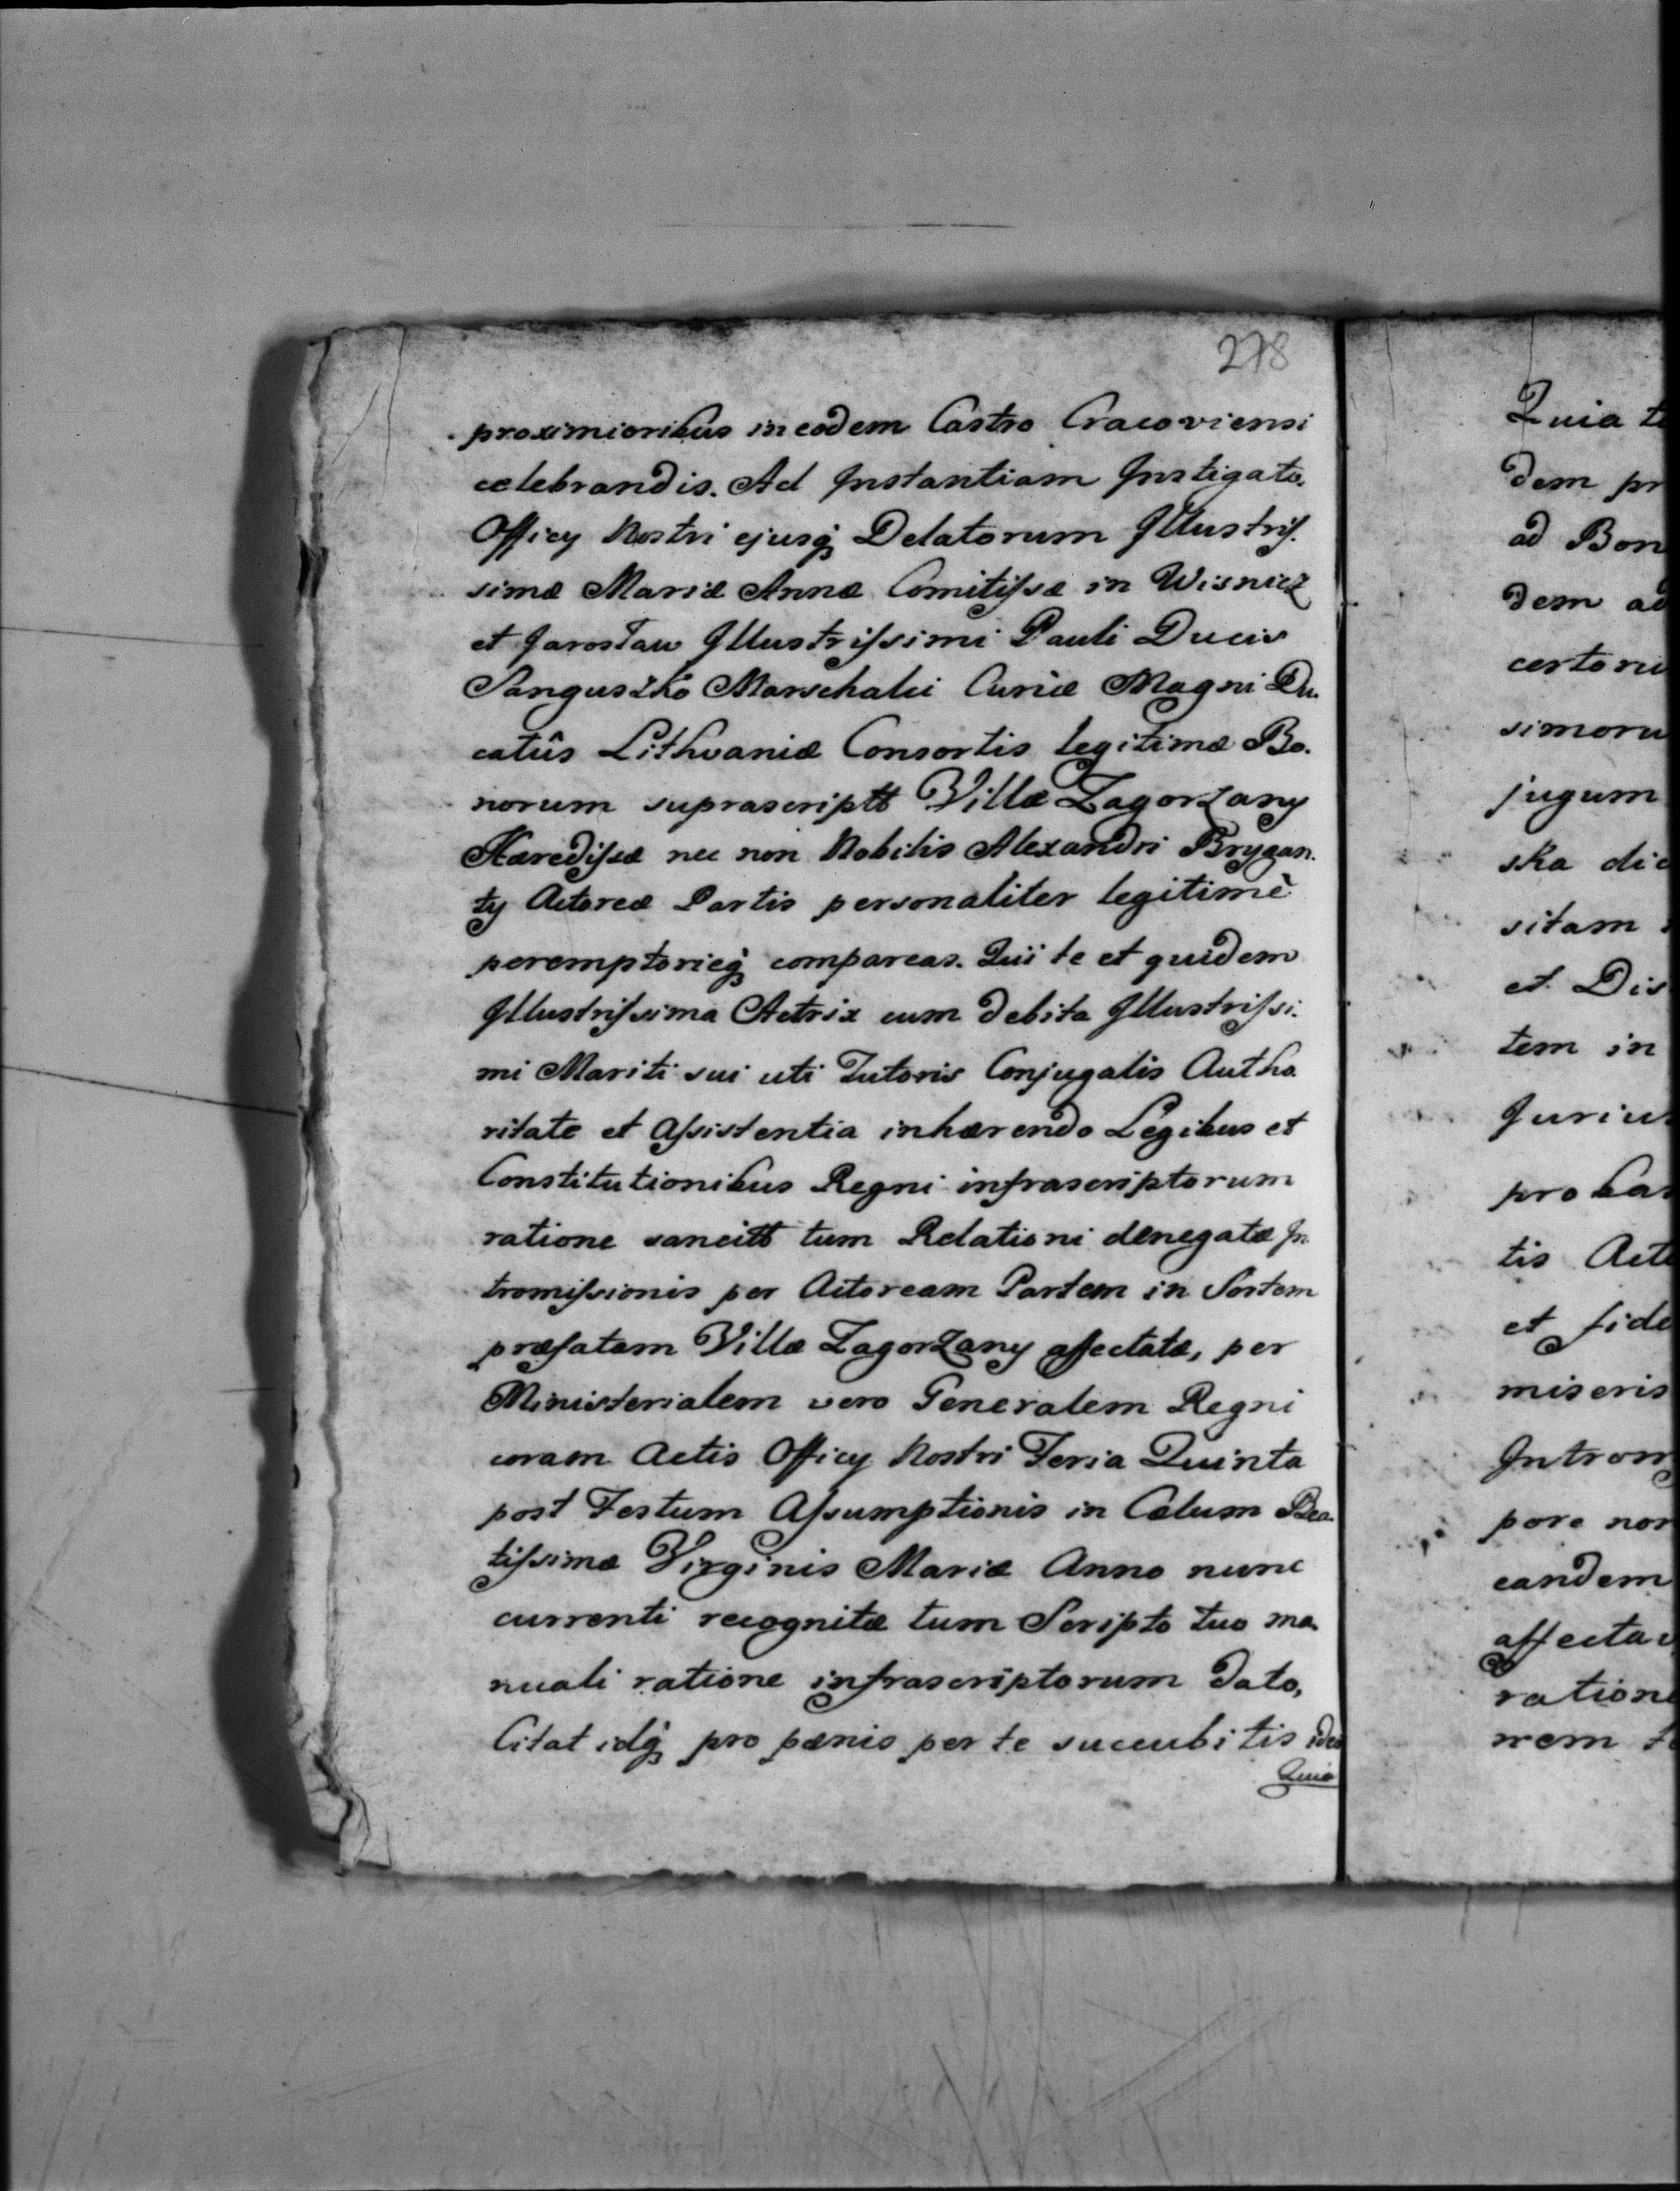 278
proximioribus in eodem Castro Cracoviensi
celebrandis. Ad Instantiam Instigato.
Officy Nostri ejusq̨ Delatorum Illustriſ.
simæ Mariæ Annæ Comitiſsæ in Wisnicz
et Jarosław Illustriſsimi Pauli Ducis
Sanguszko Marschalci Curiæ Magni Du.
catûs Lithvaniæ Consortis legitimæ Bo.
norum suprascriptt Villæ Zagorzany
Hærediſsæ nec non Nobilis Alexandri Brygan.
ty Actoreæ Partis personaliter legitimè
peremptorieq̨ compareas. Qui te et quidem
Illustriſsima Actrix cum debita Illustriſsi.
mi Mariti sui uti Tutoris Conjugalis Autho
ritate et Aſsistentia inhærendo Legibus et
Constitutionibus Regni infrascriptorum
ratione sancitt tum Relationi denegatæ In
tromiſsionis per Actoream Partem in Sortem
præfatam Villæ Zagorzany affectatæ, per
Ministerialem vero Generalem Regni
coram Actis Officy Nostri Feria Quinta
post Festum Aſsumptionis in Cælum Bea.
tiſsimæ Virginis Mariæ Anno nunc
currenti recognitæ tum Scripto tuo ma.
nuali ratione infrascriptorum dato,
Citat idq̨ pro pænis per te succubitis ideo
Quia
Quia t
dem pr
ad Bon
dem ad
certoru
simoru
jugum
ska dic
sitam
et Dis
tem in
Juriu
probas
tis Act
et fide
miseris
Introm
pore non
eandem
affecta
ratione
rem t